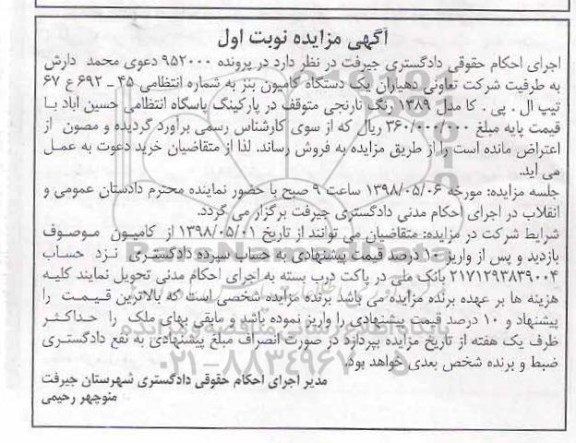 آگهی مزایده نوبت اول
اجرای احکام حقوقی دادگستری جیرفت در نظر دارد در پرونده ۹۵۲۰۰۰ دعوی محمد دارش
به طرفیت شرکت تعاونی دهیاران یک دستگاه کامیون بنز به شماره انتظامی ۴۵ _ ۶۹۲ ع ۶۷
تیپ ال . پی . کا مدل ۱۳۸۹ رنگ نارنجی متوقف در پارکینگ پاسگاه انتظامی حسین اباد با
قیمت پایه مبلغ ۳۶۰/۰۰۰/۰۰۰ ریال که از سوی کارشناس رسمی براورد گردیده و مصون از
اعتراض مانده است را از طریق مزایده به فروش رساند. لذا از متقاضیان خرید دعوت به عمل
می اید.
جلسه مزایده: مورخه ۱۳۹۸/۰۵/۰۶ ساعت ۹ صبح با حضور نماینده محترم دادستان عمومی و
انقلاب در اجرای احکام مدنی دادگستری جیرفت برگزار می گردد.
شرایط شرکت در مزایده: متقاضیان می توانند از تاریخ ۱۳۹۸/۰۵/۰۱ از کامیون موصوف
بازدید و پس از واریز ۱۰ درصد قیمت پیشنهادی به حساب سپرده دادگستری نزد حساب
۲۱۷۱۲۹۳۸۳۹۰۰۴ بانک ملی در پاکت درب بسته به اجرای احکام مدنی تحویل نمایند کلیه
هزینه ها بر عهده برنده مزایده می باشد برنده مزایده شخصی است که بالاترین قیمت را
پیشنهاد و ۱۰ درصد قیمت پیشنهادی را واریز نموده باشد و مابقی بهای ملک را حداکثر
ظرف یک هفته از تاریخ مزایده بپردازد در صورت انصراف مبلغ پیشنهادی به نفع دادگستری
ضبط و برنده شخص بعدی خواهد بود.
مدیر اجرای احکام حقوقی دادگستری شهرستان جیرفت
منوچهر رحیمی
پایگاه اطلاع رسانی مناقصه و مزایده
۰۲۱-۸۸۳۴۹۶۷۰-۵